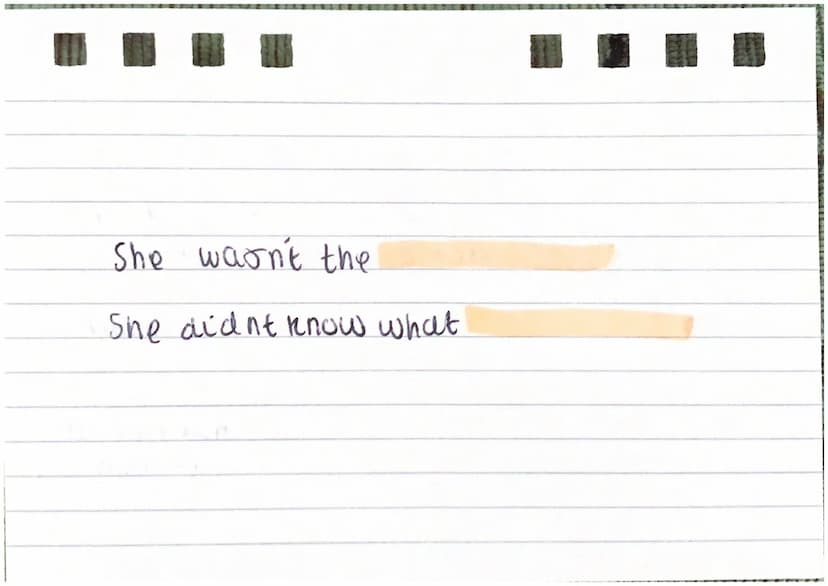 She wasn't the
She didnt know what